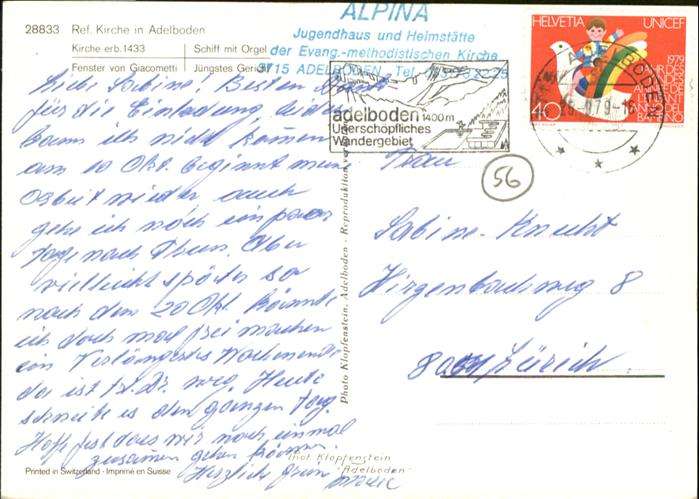 28833 Ref. Kirche in Adelboden
Kirche erb. 1433 Schiff mit Orgel
Fenster von Giacometti Jüngstes Gericht
ALPINA
Jugendhaus und Heimstätte
der Evang.-methodistischen Kirche
3715 ADELBODEN Tel.
adelboden 1400m
Unerschöpfliches
Wandergebiet
HELVETIA UNICEF
40
ADELBODEN
56
Liebe Sabine! Besten Dank
für die Einladung, leider
kann ich nicht kommen
am 10 Okt. beginnt meine
Arbeit wieder, auch
gehe ich noch ein paar
Tage nach Thun. Aber
vielleicht später so
nach dem 20 Okt. könnte
ich doch mal frei machen
ein Verlängertes Wochenende
das ist
weg. Heute
schneite es den ganzen Tag.
Hoffe fest das wir noch einmal
zusammen gehen können.
Herzlich
Frau
Sabine Knecht
8
Zürich
Photo Klopfenstein, Adelboden - Reproduktion
Photo Klopfenstein
"Adelboden"
Printed in Switzerland - Imprimé en Suisse